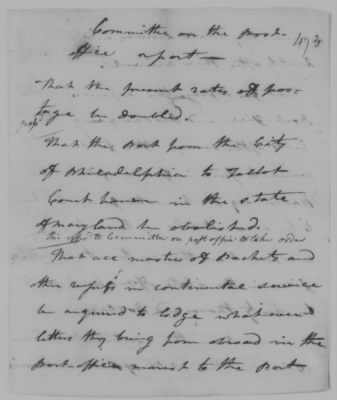 Committee on the Post-
office report —
473
That the present rates of pos-
tage be doubled.
That the Post from the City
of Philadelphia to Talbot
Court house in the state
of Maryland be abolished.
this refd to Committee on post office to take order
That all masters of Packets and
other vessels in continental service
be required to lodge whatever
letters they bring from abroad in the
Post office nearest to the Port